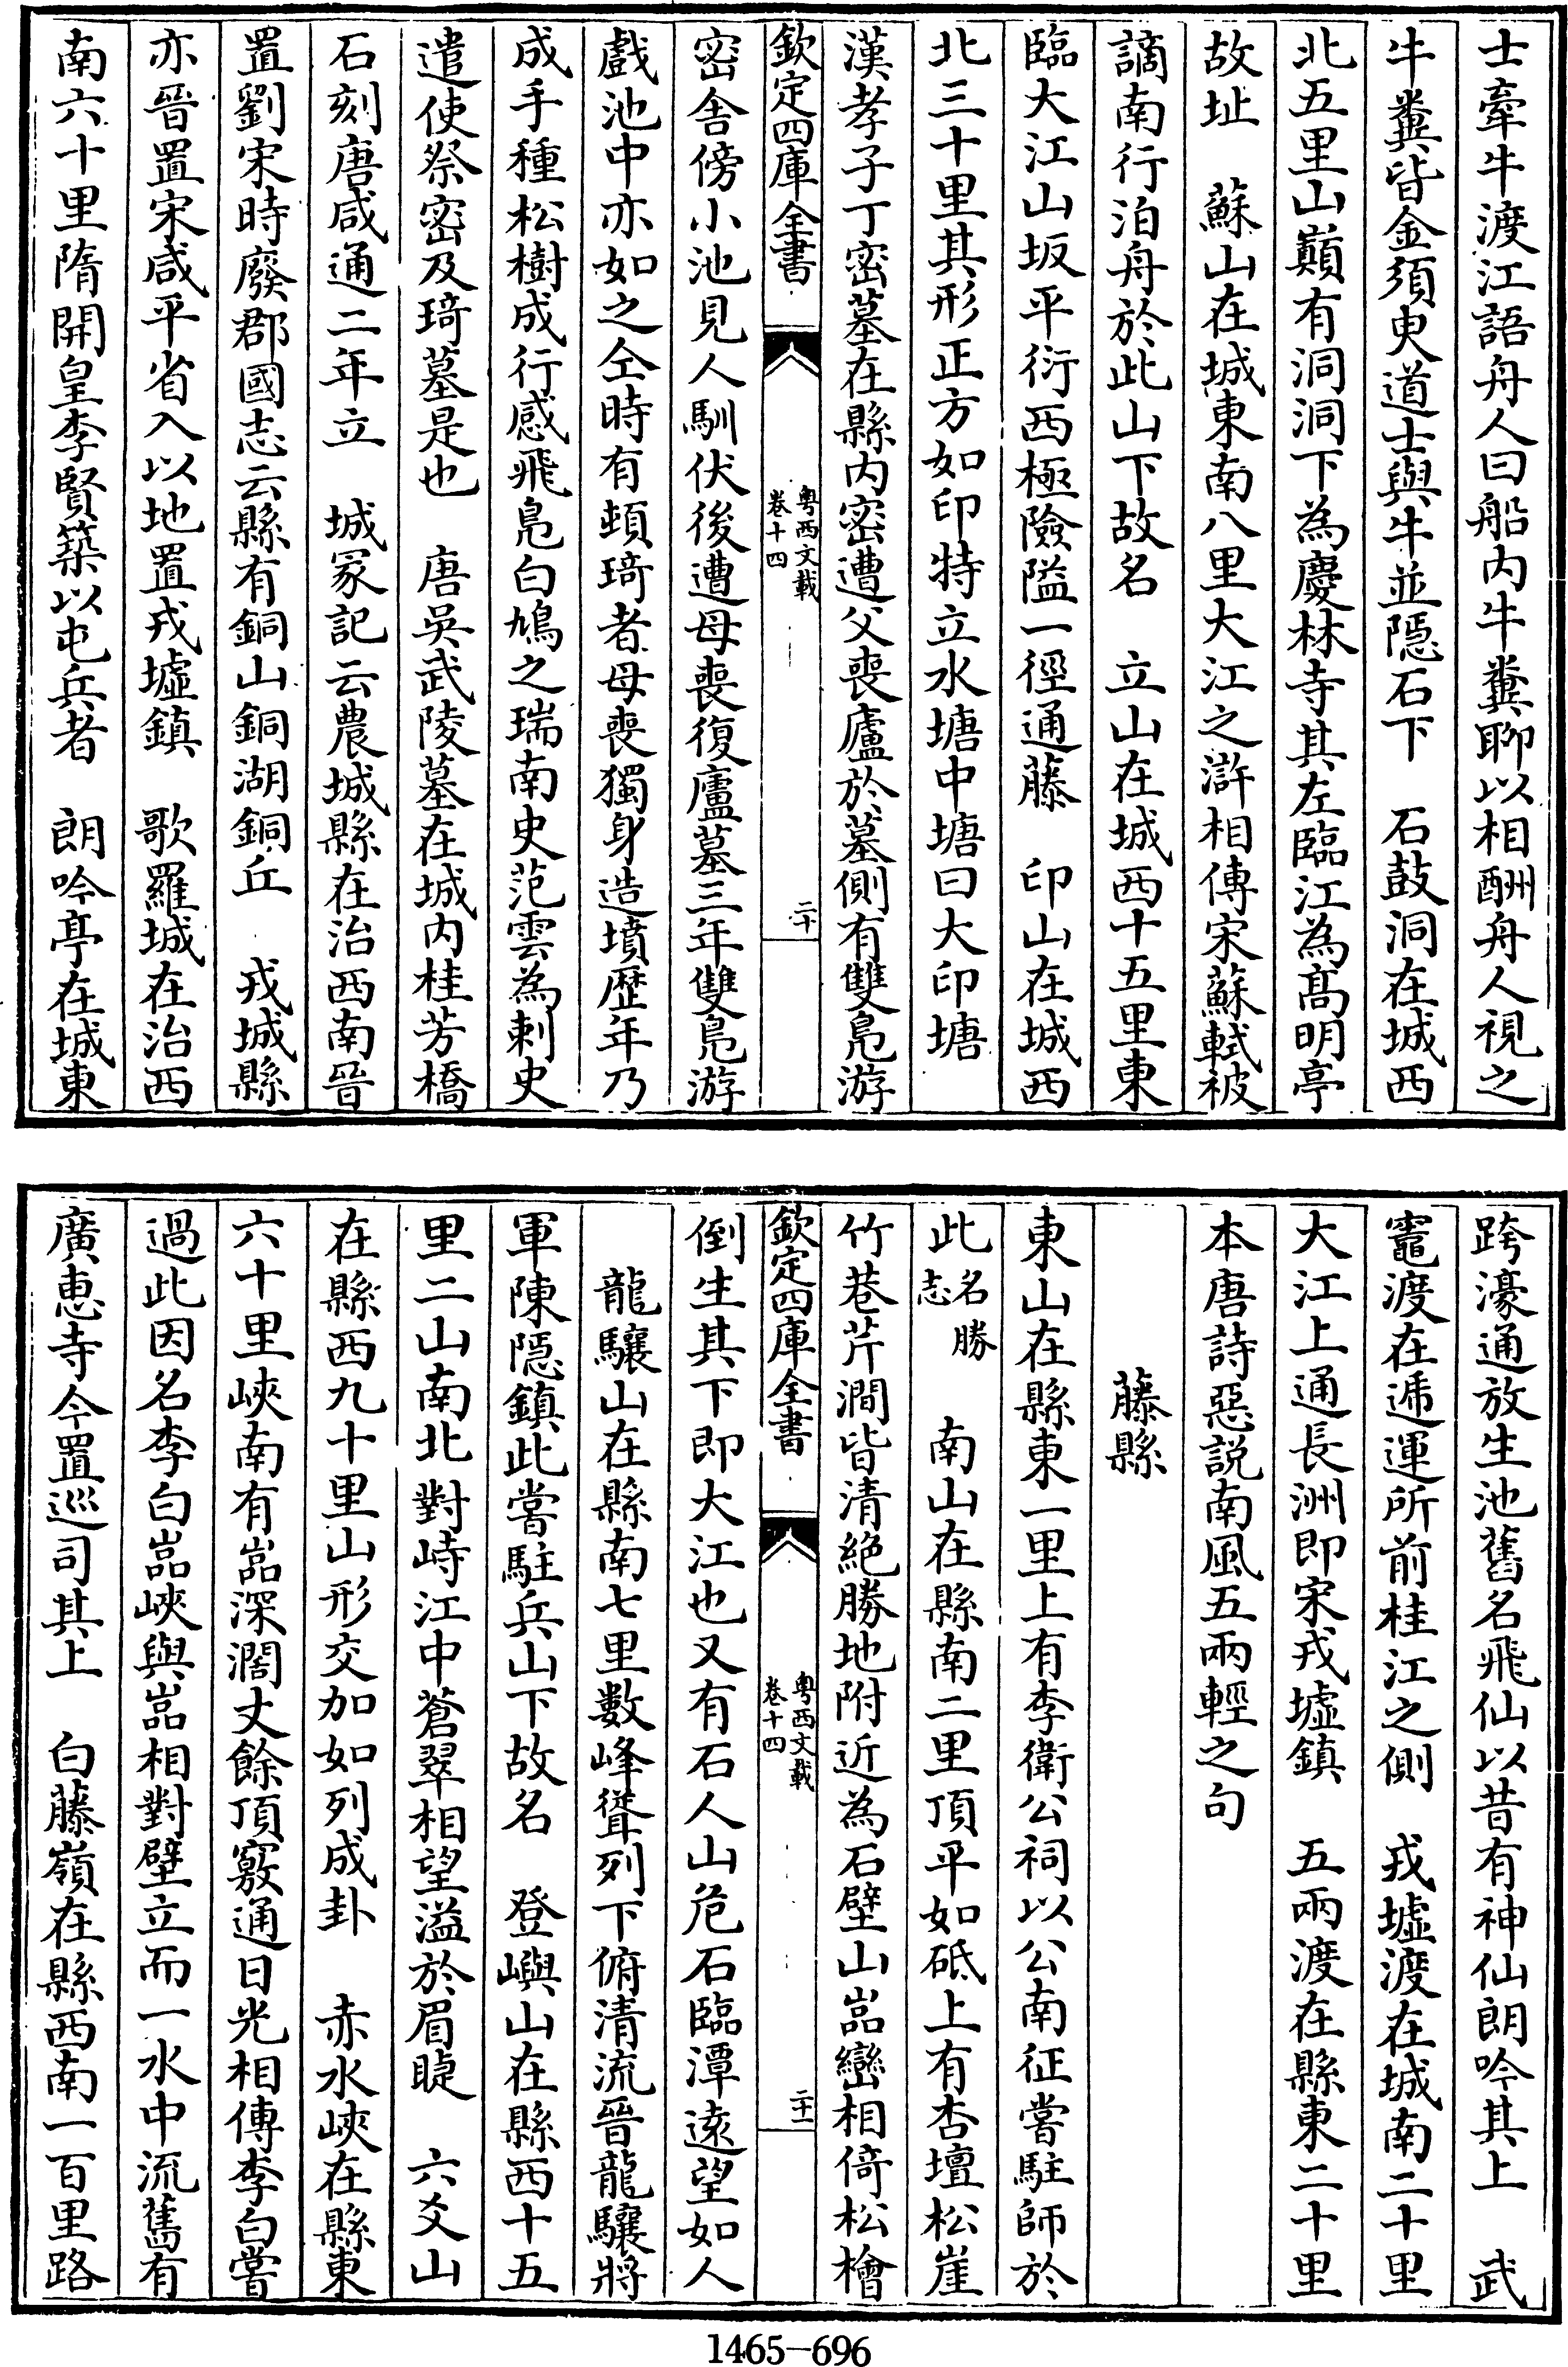 士牽牛渡江語舟人曰船内牛糞聊以相酬舟人視之
牛糞皆金須臾道士與牛並隱石下　石鼓洞在城西
北五里山巔有洞洞下為慶林寺其左臨江為髙明亭
故址　蘇山在城東南八里大江之滸相傳宋蘇軾被
謫南行泊舟於此山下故名　立山在城西十五里東
臨大江山坂平衍西極險隘一徑通藤　印山在城西
北三十里其形正方如印特立水塘中塘曰大印塘
漢孝子丁密墓在縣内密遭父喪廬於墓側有雙鳬游
欽定四庫全書
粤西文載
卷十四
二十
密舍傍小池見人馴伏後遭母喪復廬墓三年雙鳬游
戲池中亦如之仝時有頓琦者母喪獨身造墳歴年乃
成手種松樹成行感飛鳬白鳩之瑞南史范雲為刺史
遣使祭密及琦墓是也　唐吳武陵墓在城内桂芳橋
石刻唐咸通二年立　城冢記云農城縣在治西南晉
置劉宋時廢郡國志云縣有銅山銅湖銅丘　戎城縣
亦晉置宋咸平省入以地置戎墟鎮　歌羅城在治西
南六十里隋開皇李賢築以屯兵者　朗吟亭在城東
跨濠通放生池舊名飛仙以昔有神仙朗吟其上　武
竈渡在遞運所前桂江之側　戎墟渡在城南二十里
大江上通長洲即宋戎墟鎮　五兩渡在縣東二十里
本唐詩惡説南風五兩輕之句
藤縣
東山在縣東一里上有李衛公祠以公南征嘗駐師於
此名勝志　南山在縣南二里頂平如砥上有杏壇松崖
竹巷芹澗皆清絶勝地附近為石壁山嵓巒相倚松檜
欽定四庫全書
粤西文載
卷十四
二十一
倒生其下即大江也又有石人山危石臨潭逺望如人
龍驤山在縣南七里數峰聳列下俯清流晉龍驤將
軍陳隱鎮此嘗駐兵山下故名　登嶼山在縣西十五
里二山南北對峙江中蒼翠相望溢於眉睫　六爻山
在縣西九十里山形交加如列成卦　赤水峽在縣東
六十里峽南有嵓深濶丈餘頂竅通日光相傳李白嘗
過此因名李白嵓峽與嵓相對壁立而一水中流舊有
廣恵寺今置巡司其上　白藤嶺在縣西南一百里路
1465-696